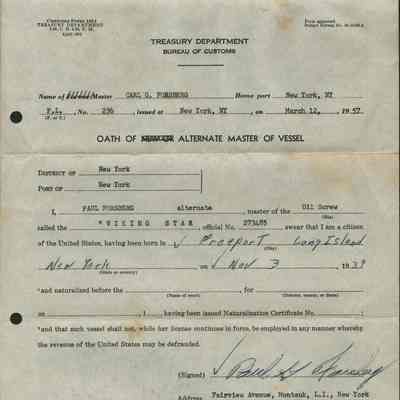 Customs Form 1251
TREASURY DEPARTMENT
Form approved.
TREASURY DEPARTMENT
BUREAU OF CUSTOMS
Name of Master CARL G. FORSBERG Home port New York, NY
P.L. No. 236, issued at New York, NY, on March 12, 1957.
OATH OF ALTERNATE MASTER OF VESSEL
DISTRICT OF New York
PORT OF New York
I, PAUL FORSBERG alternate, master of the Oil Screw
(Rig)
called the "VIKING STAR, official No. 273485 swear that I am a citizen
of the United States, having been born in ✓ Freeport Long Island
(City)
New York on ✓ Nov 3 1939
(State or country)
¹and naturalized before the, for
(Name of court) (District, county, or State)
on, I having been issued Naturalization Certificate No.;
²and that such vessel shall not, while her license continues in force, be employed in any manner whereby
the revenue of the United States may be defrauded.
(Signed) ✓ Paul G. Forsberg
Address Fairview Avenue, Montauk, L.I., New York